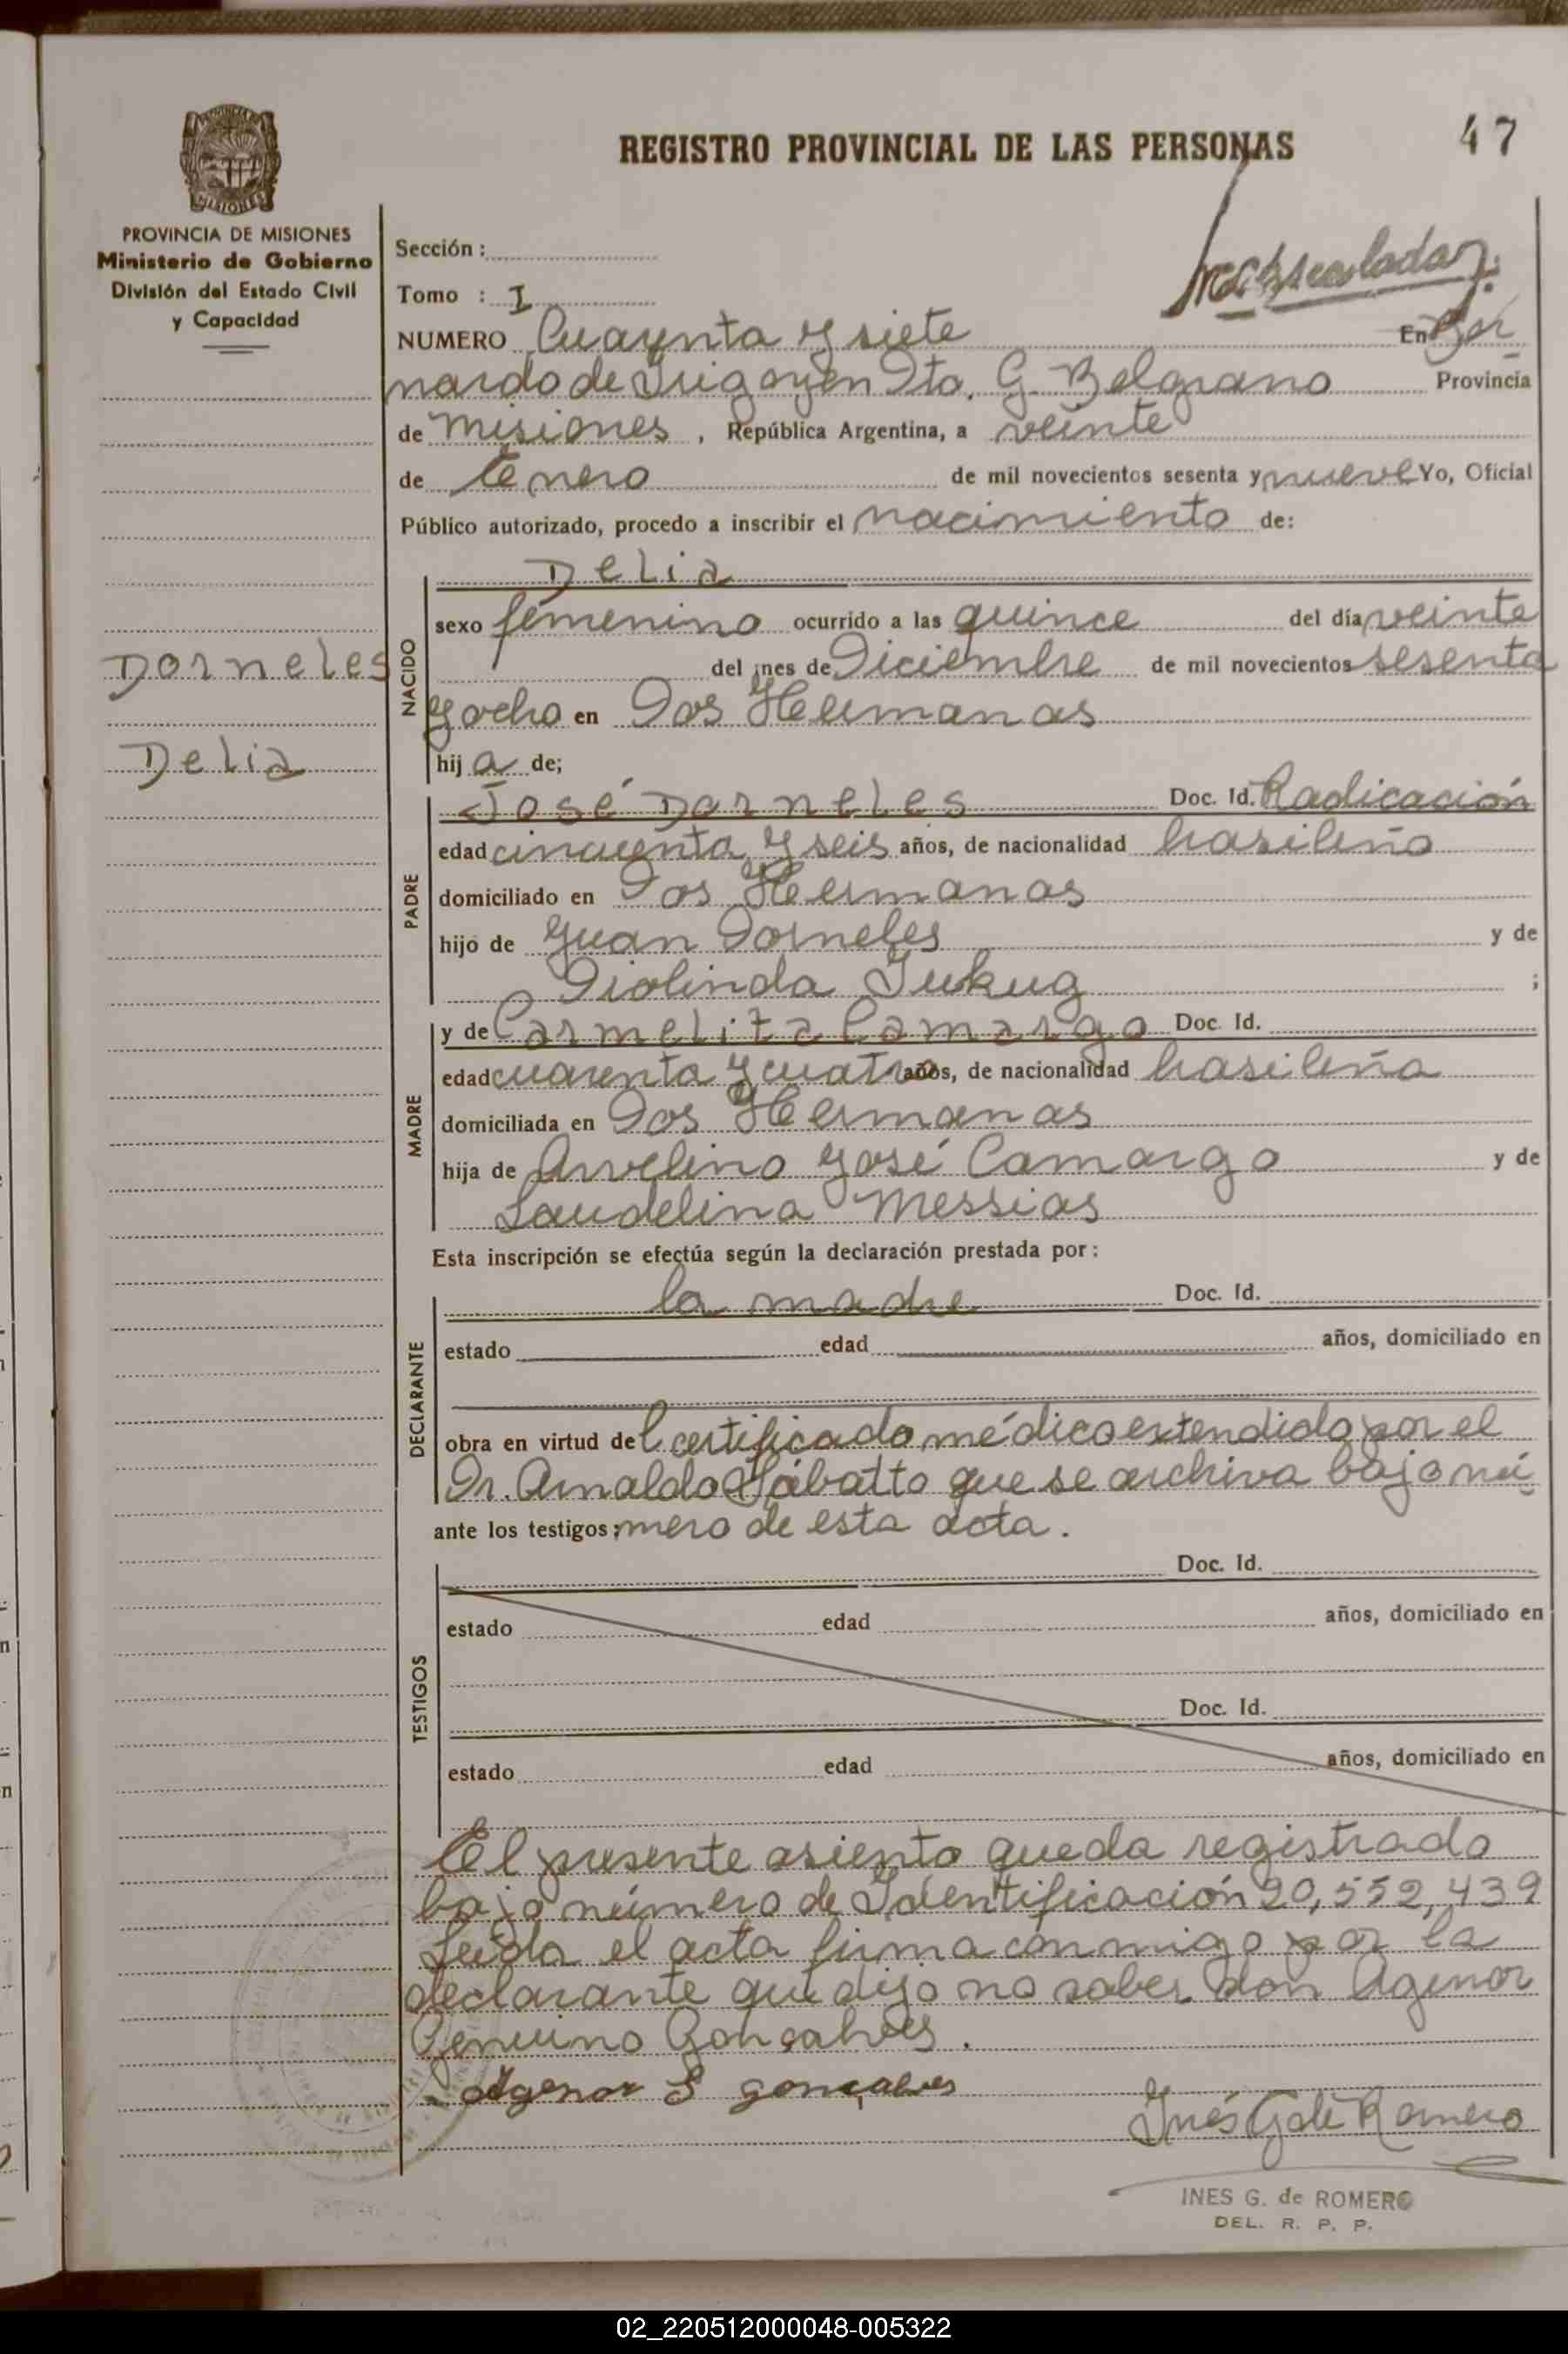 47
REGISTRO PROVINCIAL DE LAS PERSONAS
PROVINCIA DE MISIONES
Ministerio de Gobierno
División del Estado Civil
y Capacidad
Sección :
Tomo : I
NUMERO Cuarenta y siete En Ber
nardo de Irigoyen Dto. G. Belgrano Provincia
de Misiones , República Argentina, a veinte
de Enero de mil novecientos sesenta y nueve Yo, Oficial
Público autorizado, procedo a inscribir el nacimiento de:
Delia
NACIDO
sexo femenino ocurrido a las quince del día veinte
del mes de Diciembre de mil novecientos sesenta
y ocho en Dos Hermanas
hij a de;
Dorneles
Delia
José Dorneles Doc. Id. Radicación
PADRE
edad cincuenta y seis años, de nacionalidad brasileño
domiciliado en Dos Hermanas
hijo de Juan Dorneles y de
Diolinda ;
y de Carmelita Camargo Doc. Id.
MADRE
edad cuarenta y cuatro años, de nacionalidad brasileña
domiciliada en Dos Hermanas
hija de Avelino José Camargo y de
Laudelina Messias
Esta inscripción se efectúa según la declaración prestada por :
la madre Doc. Id.
DECLARANTE
estado edad años, domiciliado en
obra en virtud del certificado médico extendido por el
Dr. Arnaldo Sábatto que se archiva bajo nú
ante los testigos; mero de esta acta.
Doc. Id.
TESTIGOS
estado edad años, domiciliado en
Doc. Id.
estado edad años, domiciliado en
El presente asiento queda registrado
bajo número de Identificación 20,552,439
Leída el acta firma conmigo por la
declarante que dijo no saber don Agenor
Gonçalves.
Agenor S gonçalves
Inés G de Romero
INES G. de ROMERO
DEL. R. P. P.
02_220512000048-005322